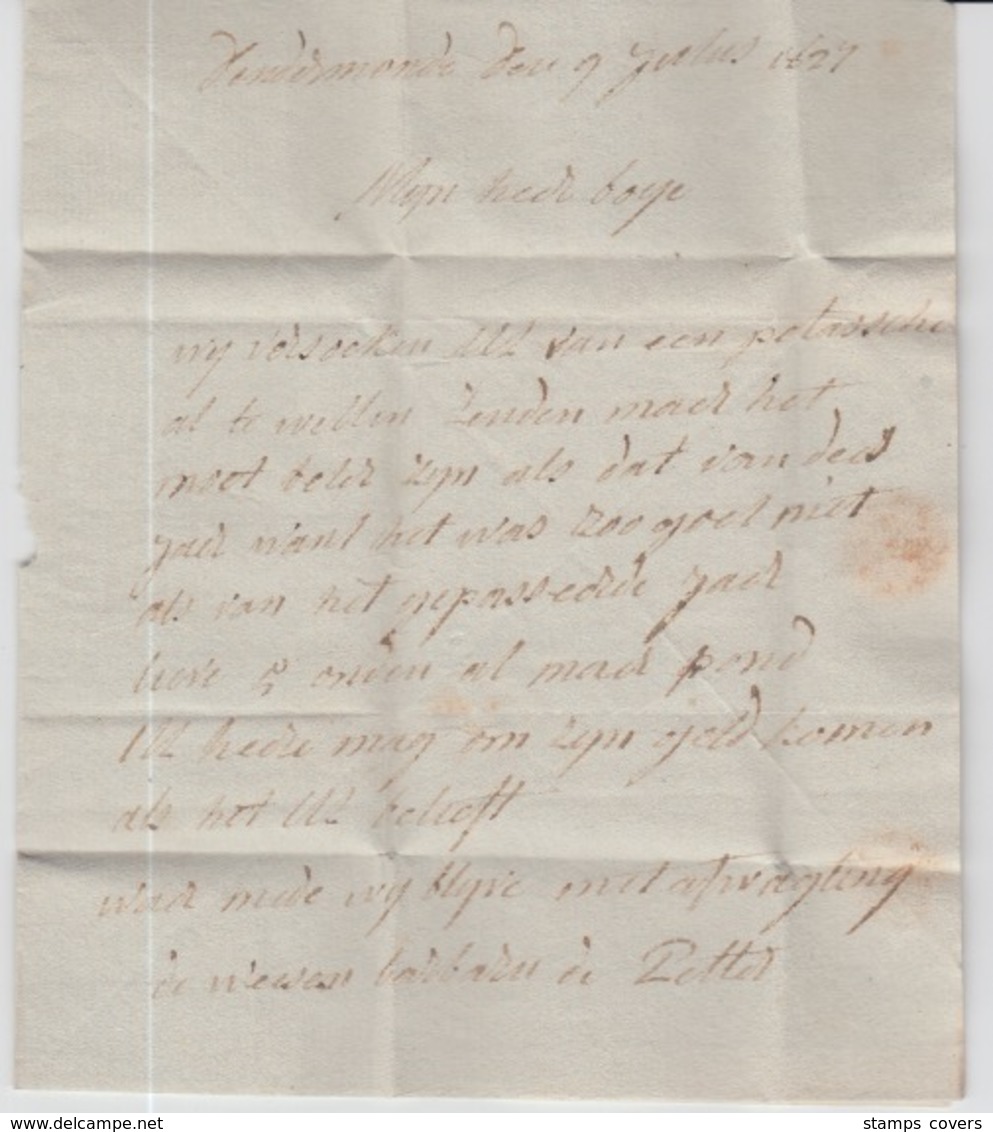 dendermonde den 9 julius 1827
Myn heer boye
wy versoeken UL van een potassche
al te willen zenden maer het
moet beter zyn als dat van dees
jaer want het was zoo goet niet
als van het gepasseerde jaer
5 onden al maer pond
UL heere mag om zyn geld komen
als het UL belieft
waer mede wy blyve met afwagting
de weeuw de Zetter
stamps covers